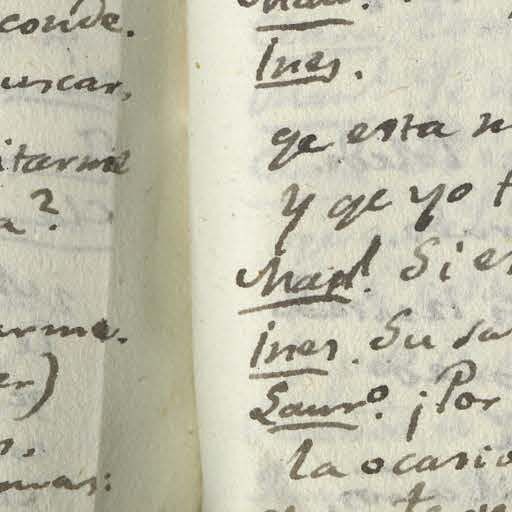 conde.
uscar,
itarme
a?
arme.
er)
s.
mas:
Mad.
Ines.
qe esta n
y qe yo t
Mad. Si es
Ines. Su sa
Lauro. ¡Por
la ocasio